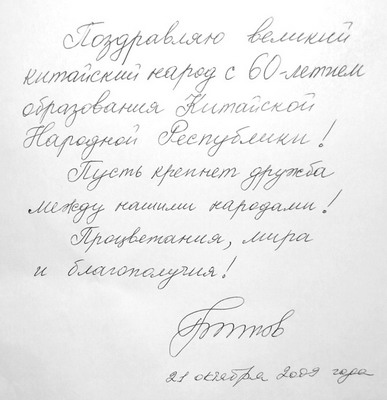 Поздравляю великий
китайский народ с 60-летием
образования Китайской
Народной Республики!
Пусть крепнет дружба
между нашими народами!
Процветания, мира
и благополучия!
21 октября 2009 года